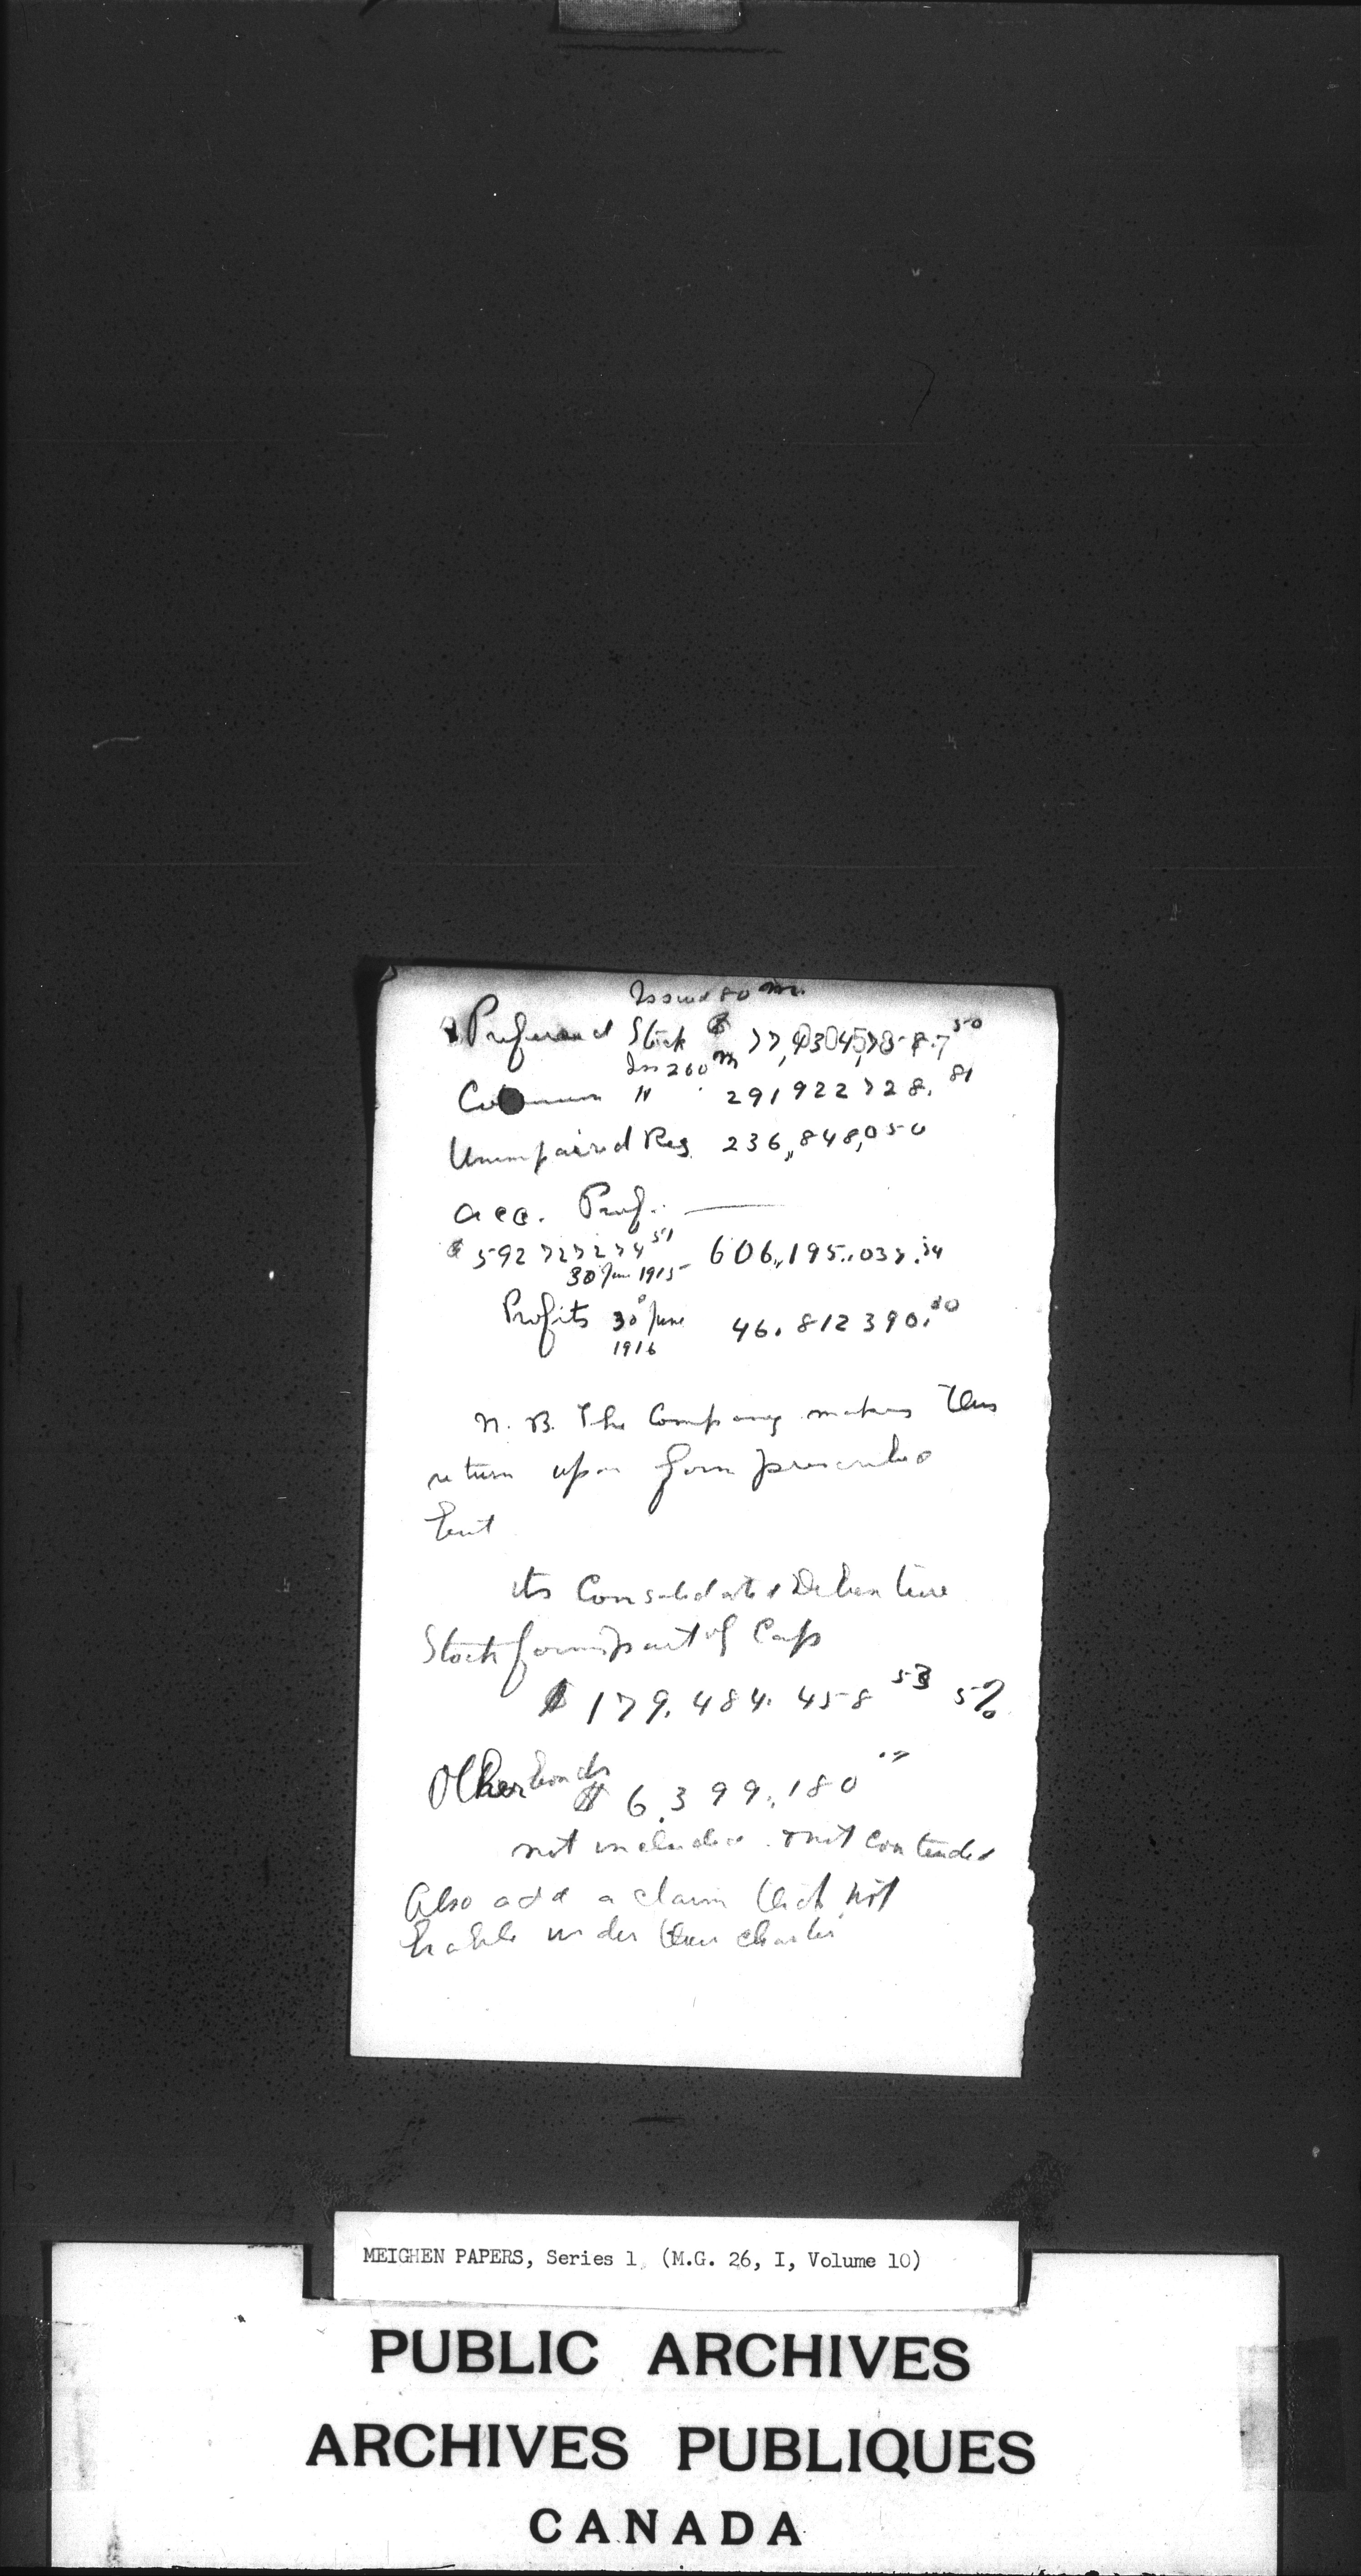 Issued 80 m.
Preferred Stock $
Iss 260 m
Common " 291922728.81
Unimpaired Res. 236,848,050
acc. Prof. —
$ 592727274 51 606,195,037.34
30 June 1915
Profits 30 June 46.812390.
1916
N.B. The Company makes this
return upon form prescribed
but
its Consolidated Debenture
Stock forms part of Cap
$ 179.484.458 53 5%
Other bonds $ 6.399.180
not included & not contended
Also add a claim that not
liable under their charter
MEIGHEN PAPERS, Series 1 (M.G. 26, I, Volume 10)
PUBLIC ARCHIVES
ARCHIVES PUBLIQUES
CANADA